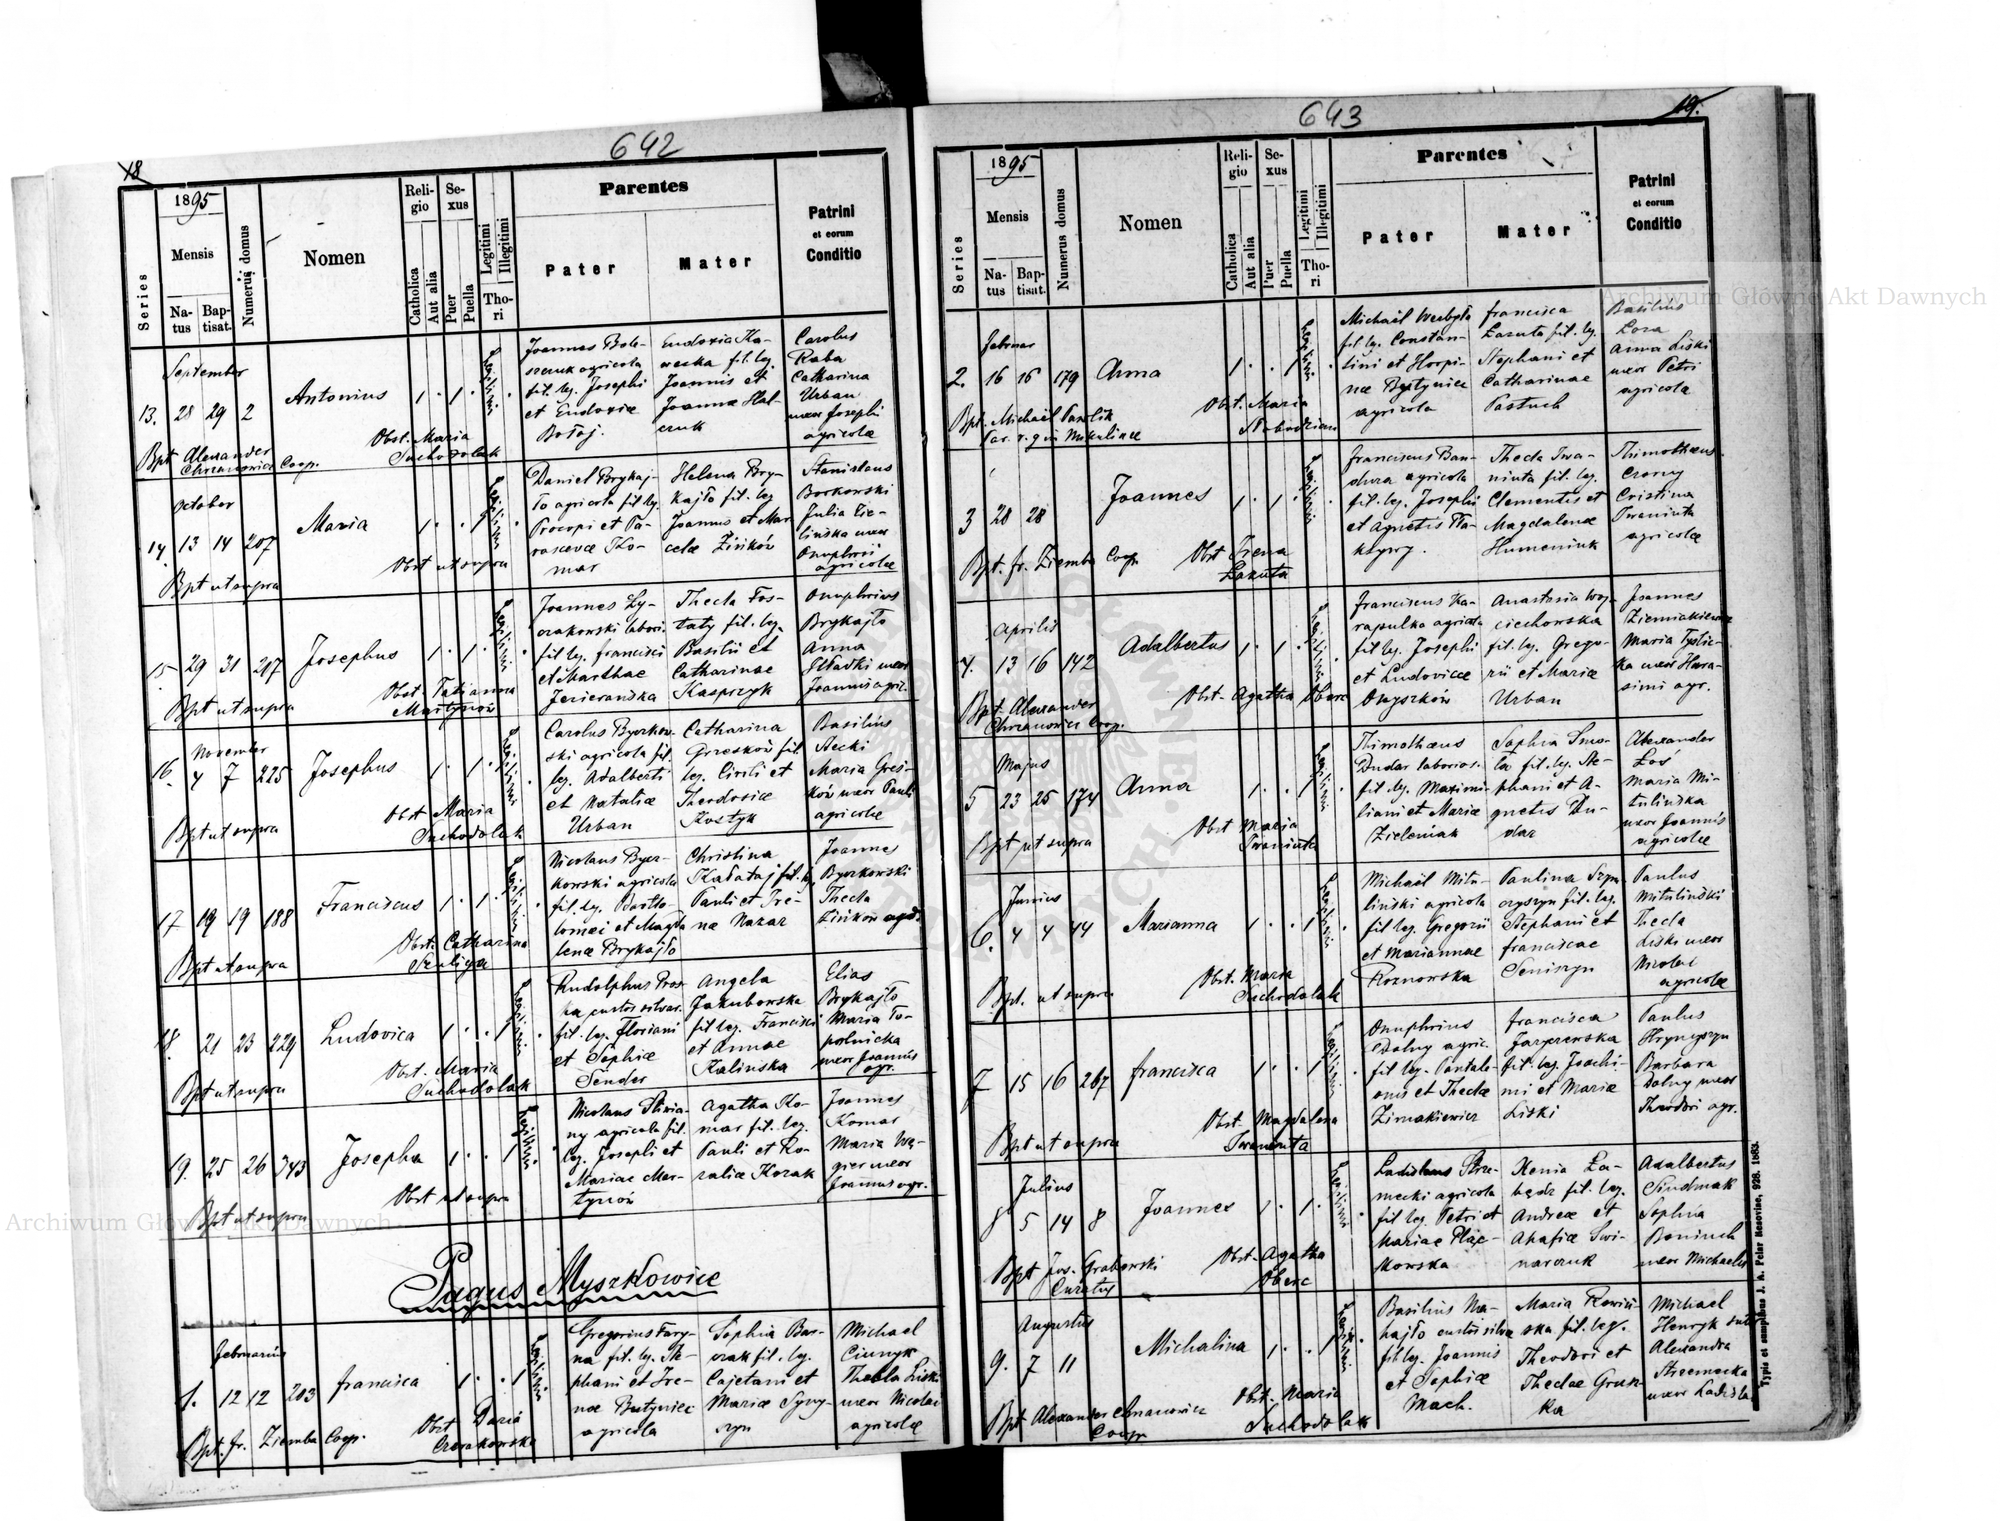 18
642
1895
Series
Mensis
Natus
Baptisat.
Numerus domus
Nomen
Religio
Catholica
Aut alia
Sexus
Puer
Puella
Legitimi
Illegitimi
Thori
Parentes
Pater
Mater
Patrini
et eorum
Conditio
September
13. 28 29 2 Antonius 1 . 1 .
Joannes Bole-
agricola
fil. leg. Josephi
et Eudoxiæ
Eudoxia Ka-
fil. leg.
Joannis et
Joannæ
Carolus
Raba
Catharina
Urban
uxor Josephi
agricolæ
Bpt Alexander
Chrzanowicz Coop.
Obst. Maria
Suchodolak
October
14. 13 14 207 Maria 1 . . 1
Daniel Brykaj-
ło agricola fil. leg.
Procopi et Pa-
rascevæ Ko-
mar
Helena Bry-
kajło fil. leg
Joannis et Mar-
celæ Zińków
Stanislaus
Borkowski
Julia Zie-
lińska uxor
Onuphrii
agricolæ
Bpt ut supra
Obst ut supra
15. 29 31 217 Josephus 1 . 1 .
Joannes Ly-
czakowski labori.
fil leg. Francisci
et Marthae
Jezieranska
Thecla Tos-
taty fil. leg.
Basilii et
Catharinae
Kasprzyk
Onuphrius
Brykajło
Anna
Skladki uxor
Joannis agric.
Bpt ut supra
Obst. Tatianna
Martynow
November
16. 4 7 225 Josephus 1 . 1 .
Carolus Byczkow-
ski agricola fil.
leg. Adalberti
et Nataliæ
Urban
Catharina
Grzesków fil
leg. Cirili et
Theodosiæ
Kostyk
Basilius
Stecki
Maria Gres-
ków uxor Pauli
agricolæ
Bpt ut supra
Obst Maria
Suchodolak
17 19 19 188 Franciscus 1 . 1 .
Nicolaus Bycz-
kowski agricola
fil. leg. Bartlo-
lomæi et Magda
lenæ Brykajło
Christina
Kałataj fil. leg.
Pauli et Ire-
næ Nazar
Joannes
Byczkowski
Thecla
Zińków agric.
Bpt ut supra
Obst. Catharina
Szeliga
18. 21 23 229 Ludovica 1 . . 1
Rudolphus Pros-
ka custos silvar.
fil. leg. Floriani
et Sophiæ
Sender
Angela
Jakubowska
fil leg. Francisci
et Annae
Kalinska
Elias
Brykajło
Maria To-
polnicka
uxor Joannis
agr.
Bpt ut supra
Obst. Maria
Suchodolak
19. 25 26 343 Josepha 1 . . 1
Nicolaus Sliwia-
ny agricola fil.
leg. Josephi et
Mariae Mar-
tynów
Agatha Ko-
mar fil. leg.
Pauli et Ro-
saliæ Kozak
Joannes
Komar
Maria Wę-
gier uxor
Joannis agr.
Bpt ut supra
Obst ut supra
Pagus Myszkowice
Februarius
1. 12 12 203 Francisca 1 . . 1
Gregorius Fary-
na fil. leg. Ste-
phani et Ire-
næ Bestyniec
agricola
Sophia Bas-
zrak fil. leg.
Cajetani et
Mariæ Syny-
szyn
Michael
Ciunyk
Thekla Liski
uxor Nicolai
agricolæ
Bpt. fr. Ziemba Coop.
Obst Daria
Czerakowska
643
19.
1895
Series
Mensis
Natus
Baptisat.
Numerus domus
Nomen
Religio
Catholica
Aut alia
Sexus
Puer
Puella
Legitimi
Illegitimi
Thori
Parentes
Pater
Mater
Patrini
et eorum
Conditio
Februar
2. 16 16 179 Anna 1 . . 1
Michaël Werbyła
fil leg. Constan-
tini et Horpi-
næ Bestyniec
agricola
Francisca
Lazuta fil. leg.
Stephani et
Catharinae
Pastuch
Basilius
Loza
Anna Liski
uxor Petri
agricola
Bpt. Michaël Pawlik
Obst. Maria
Słobodzian
3 28 28 Joannes 1 . 1 .
Franciscus Ban-
dura agricola
fil. leg. Josephi
et Agnetis
Thecla Iwa-
niuta fil. leg.
Clementis et
Magdalenæ
Humeniuk
Thimothæus
Czorny
Cristina
Iwaniuta
agricolæ
Bpt. fr. Ziemba Coop.
Obst Irena
Lazuta
Aprilis
4. 13 16 142 Adalbertus 1 . 1 .
Franciscus Ka-
rapulka agricola
fil leg. Josephi
et Ludovicæ
Onyszków
Anastasia Woj-
ciechowska
fil. leg. Grego-
rii et Mariæ
Urban
Joannes
Ziemiakiewicz
Maria Tyslic-
ka uxor Hara-
simi agr.
Bpt. Alexander
Chrzanowicz Coop.
Obst. Agatha Oberc
Majus
5 23 25 174 Anna 1 . . 1
Thimothæus
Dudar laborios.
fil. leg. Maximi-
liani et Mariæ
Zieleniak
Sophia Smo-
la fil. leg. Ste-
phani et A-
gnetis Du-
dar
Alexander
Łoś
Maria Mi-
tulinska
uxor Joannis
agricolæ
Bpt ut supra
Obst Maria
Iwaniuta
Junius
6. 4 4 44 Marianna 1 . . 1
Michaël Mitu-
linski agricola
fil leg. Gregorii
et Mariannae
Roznowska
Paulina Szpa-
czyszyn fil. leg.
Stephani et
Franciscae
Seniszyn
Paulus
Mitulinski
Thecla
Liski uxor
Nicolai
agricolæ
Bpt. ut supra
Obst. Maria
Suchodolak
7 15 16 267 Francisca 1 . . 1
Onuphrius
Dolny agric.
fil leg. Pantale-
onis et Theclæ
Zimakiewicz
Francisca
Jazrzewska
fil. leg. Joachi-
mi et Mariæ
Liski
Paulus
Hrynyszyn
Barbara
Dolny uxor
Theodori agr.
Bpt ut supra
Obst. Magdalena
Iwaniuta
Julius
8 5 14 8 Joannes 1 . 1 .
Ladislaus Strze-
mecki agricola
fil leg. Petri et
Mariae Pląc-
kowska
Xenia Ła-
będz fil. leg.
Andreæ et
Ahafiæ Swi-
narczuk
Adalbertus
Sindmak
Sophia
Boniuch
uxor Michaelis
Bpt Jos. Grabowski
Curatus
Obst. Agatha
Oberc
Augustus
9. 7 11 Michalina 1 . . 1
Basilius Ma-
hajło custos silva
fil leg. Joannis
et Sophiæ
Mach.
Maria Rewic-
ska fil. leg.
Theodori et
Theclae Grun-
ka
Michael
Henryk
Alexandra
Strzemecka
uxor Ladisla.
Bpt Alexander Chrzanowicz
Coop.
Obst. Maria
Suchodolak
Typis et sumptibus J. A. Pelar Resoviae, 928. 1883.
Archiwum Główne Akt Dawnych
Archiwum Główne Akt Dawnych